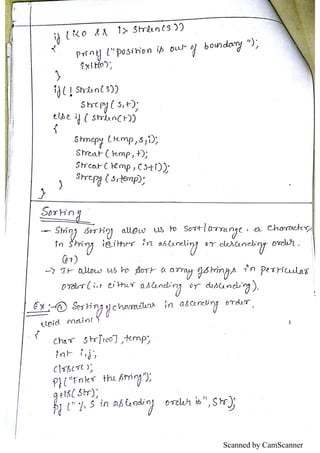 if (i<0 && i> strlen(s))
{ printf ("position is out of boundary");
exit(0);
}
if(! strlen(s))
strcpy(s,t);
else if (strlen(t))
{
strncpy (temp,s,i);
strcat (temp, t);
strcat (temp, (s+i));
strcpy (s,temp);
}
}
Sorting
- String sorting allow us to sort/arrange a character
in string either in ascending or descending order.
(or)
-> It allow us to sort a array of strings in perticular
order (i.e either ascending or descending).
Ex:- ① Sorting of characters in ascending order.
void main() {
{
char str[100],temp;
int i,j;
clrscr();
pf("Enter the string");
gets(str);
pf (" %s in ascending order is", str);
Scanned by CamScanner